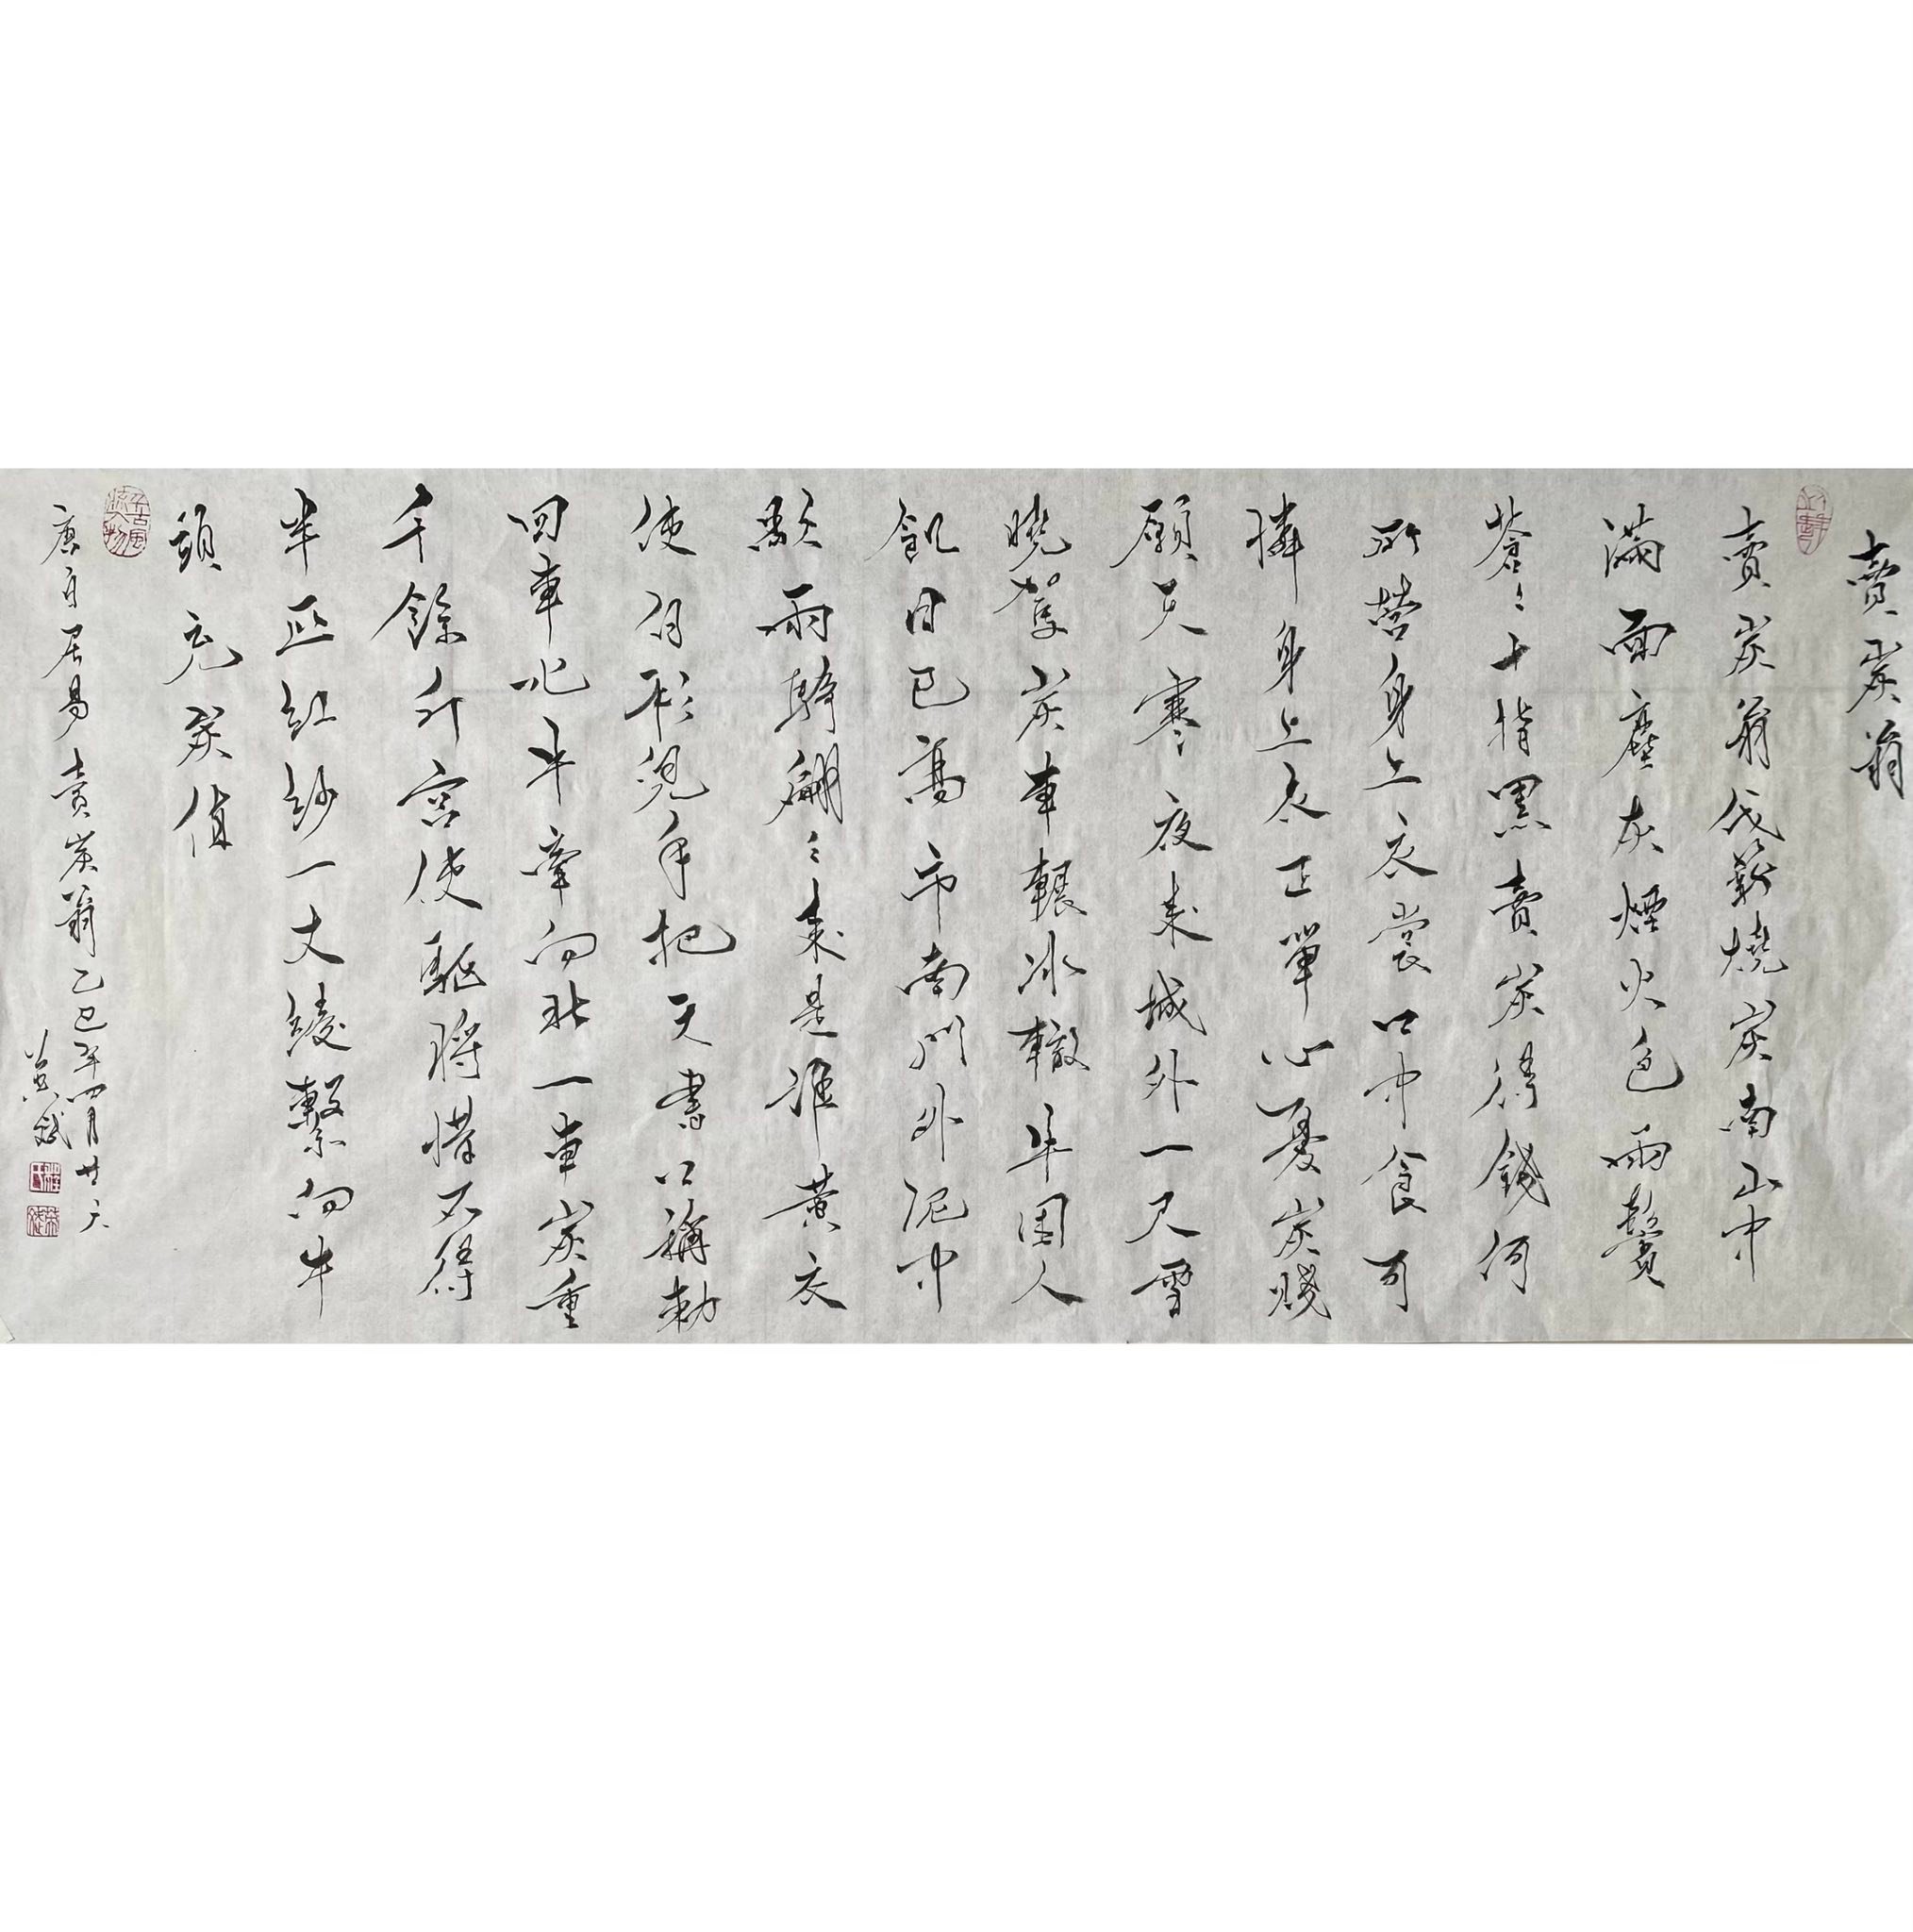 賣炭翁
賣炭翁伐薪燒炭南山中
滿面塵灰煙火色兩鬢
蒼々十指黑賣炭得錢何
所營身上衣裳口中食可
憐身上衣正單心憂炭賤
願天寒夜來城外一尺雪
曉駕炭車輾冰轍牛困人
飢日已高市南門外泥中
歇兩騎翩々來是誰黃衣
使白衫兒手把文書口稱勅
回車叱牛牽向北一車炭重
千餘斤宮使驅將惜不得
半匹紅紗一丈綾繫向牛
頭充炭值
千古風流人物
唐白居易賣炭翁乙巳年四月廿六
斌